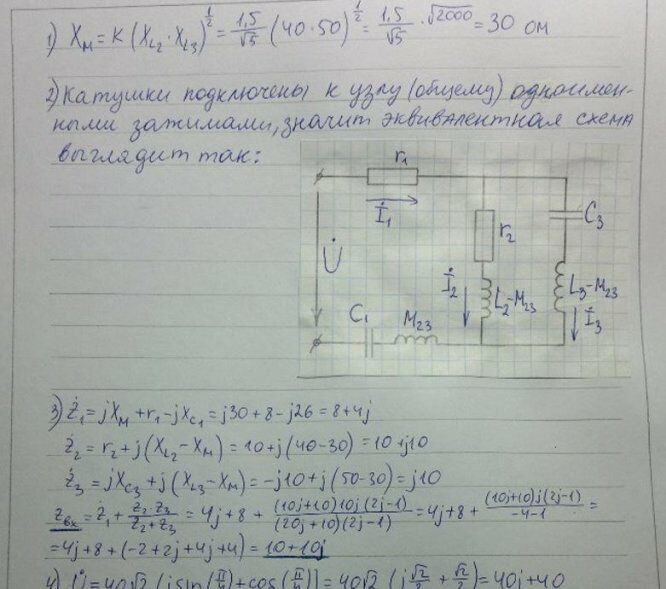 1) X_M = K (X_L2 · X_L3)^(1/2) = 1,5/√5 (40·50)^(1/2) = 1,5/√5 · √2000 = 30 ом
2) Катушки подключены к узлу (общему) одноимен-
ными зажимами, значит эквивалентная схема
выглядит так:
r1
İ1
C3
r2
U̇
İ2
L2-M23
L3-M23
İ3
C1
M23
3) Ż1 = jX_M + r1 - jX_C1 = j30 + 8 - j26 = 8 + 4j
Ż2 = r2 + j(X_L2 - X_M) = 10 + j(40-30) = 10 + j10
Ż3 = jX_C3 + j(X_L3 - X_M) = -j10 + j(50-30) = j10
Zвх = Ż1 + Ż2·Ż3/Ż2+Ż3 = 4j + 8 + (10j+10)10j(2j-1)/(20j+10)(2j-1) = 4j + 8 + (10j+10)j(2j-1)/-4-1 =
= 4j + 8 + (-2 + 2j + 4j + 4) = 10 + 10j
4) U̇ = 40√2 (j sin(π/4) + cos(π/4)) = 40√2 (j √2/2 + √2/2) = 40j + 40